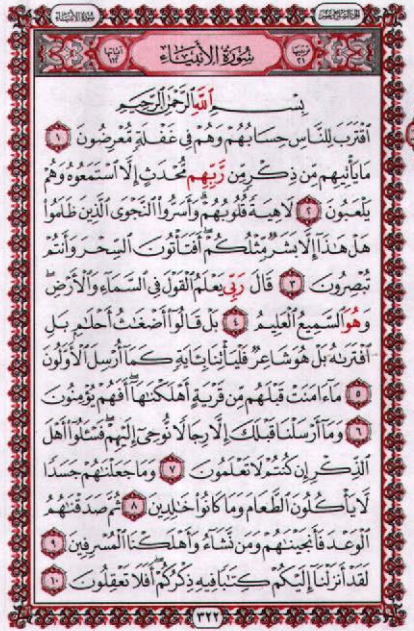 الجزء السابع عشر
سورة الأنبياء
ترتيبها ٢١
سُورَةُ الأَنبِيَاءِ
آياتها ١١٢
بِسْمِ اللَّهِ الرَّحْمَٰنِ الرَّحِيمِ
ٱقْتَرَبَ لِلنَّاسِ حِسَابُهُمْ وَهُمْ فِي غَفْلَةٍ مُّعْرِضُونَ ١
مَا يَأْتِيهِم مِّن ذِكْرٍ مِّن رَّبِّهِم مُّحْدَثٍ إِلَّا ٱسْتَمَعُوهُ وَهُمْ
يَلْعَبُونَ ٢ لَاهِيَةً قُلُوبُهُمْ ۗ وَأَسَرُّوا۟ ٱلنَّجْوَى ٱلَّذِينَ ظَلَمُوا۟
هَلْ هَٰذَا إِلَّا بَشَرٌ مِّثْلُكُمْ ۖ أَفَتَأْتُونَ ٱلسِّحْرَ وَأَنتُمْ
تُبْصِرُونَ ٣ قَالَ رَبِّي يَعْلَمُ ٱلْقَوْلَ فِي ٱلسَّمَاءِ وَٱلْأَرْضِ ۖ
وَهُوَ ٱلسَّمِيعُ ٱلْعَلِيمُ ٤ بَلْ قَالُوا۟ أَضْغَٰثُ أَحْلَٰمٍ بَلِ
ٱفْتَرَىٰهُ بَلْ هُوَ شَاعِرٌ فَلْيَأْتِنَا بِـَٔايَةٍ كَمَا أُرْسِلَ ٱلْأَوَّلُونَ
٥ مَا ءَامَنَتْ قَبْلَهُم مِّن قَرْيَةٍ أَهْلَكْنَٰهَا ۖ أَفَهُمْ يُؤْمِنُونَ
٦ وَمَا أَرْسَلْنَا قَبْلَكَ إِلَّا رِجَالًا نُّوحِي إِلَيْهِمْ ۖ فَسْـَٔلُوا۟ أَهْلَ
ٱلذِّكْرِ إِن كُنتُمْ لَا تَعْلَمُونَ ٧ وَمَا جَعَلْنَٰهُمْ جَسَدًا
لَّا يَأْكُلُونَ ٱلطَّعَامَ وَمَا كَانُوا۟ خَٰلِدِينَ ٨ ثُمَّ صَدَقْنَٰهُمُ
ٱلْوَعْدَ فَأَنجَيْنَٰهُمْ وَمَن نَّشَاءُ وَأَهْلَكْنَا ٱلْمُسْرِفِينَ ٩
لَقَدْ أَنزَلْنَا إِلَيْكُمْ كِتَٰبًا فِيهِ ذِكْرُكُمْ ۖ أَفَلَا تَعْقِلُونَ ١٠
٣٢٢